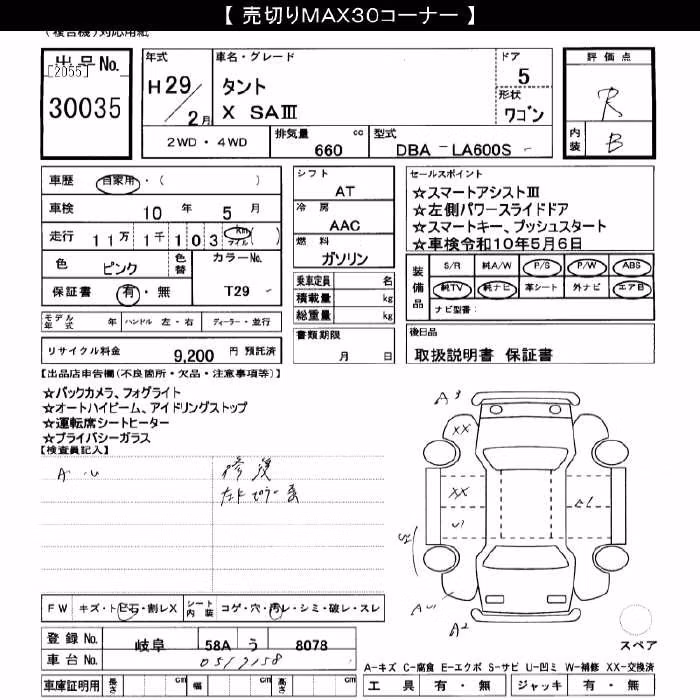 【 売切りMAX30コーナー 】
(複合機)対応用紙
出品No.
[2055]
30035
年式
H29/2月
車名・グレード
タント
X SAⅢ
ドア
5
形状
ワゴン
評価点
R
内装
B
2WD・4WD
排気量 cc
660
型式
DBA－LA600S－
車歴 自家用・( )
車検 10年 5月
走行 11万1千103 km マイル ( )
色 ピンク
色替
カラーNo.
T29
保証書 有・無
モデル年式 年
ハンドル 左・右
ディーラー・並行
リサイクル料金 9,200 円 預託済
シフト
AT
冷房
AAC
燃料
ガソリン
乗車定員 名
積載量 kg
総重量 kg
書類期限
月 日
セールスポイント
☆スマートアシストⅢ
☆左側パワースライドドア
☆スマートキー、プッシュスタート
☆車検令和10年5月6日
装備品
S/R 純A/W P/S P/W ABS
純TV 純ナビ 革シート 外ナビ エアB
ナビ型番：
後日品
取扱説明書 保証書
【出品店申告欄(不良箇所・欠品・注意事項等)】
☆バックカメラ、フォグライト
☆オートハイビーム、アイドリングストップ
☆運転席シートヒーター
☆プライバシーガラス
【検査員記入】
A・U
修復
A3
XX
XX
U1
A1
S2
AU
A2
スペア
FW キズ・トビ石・割レX
シート内装 コゲ・穴・汚レ・シミ・破レ・スレ
登録No. 岐阜 58A う 8078
車台No. 0517158
車庫証明用 長さ cm 幅 cm 高さ cm
A-キズ C-腐食 E-エクボ S-サビ U-凹ミ W-補修 XX-交換済
工具 有・無 ジャッキ 有・無